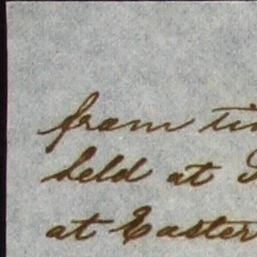 from ti
held at
at Easter